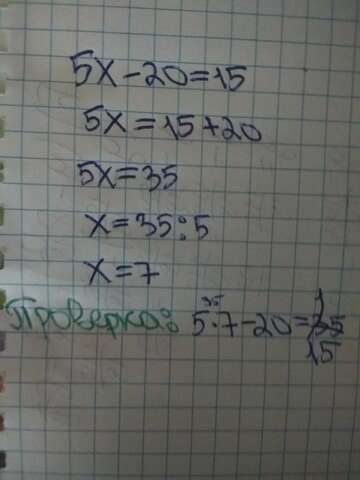 5x-20=15
5x=15+20
5x=35
x=35:5
x=7
Проверка: 5·7-20=15
35
15